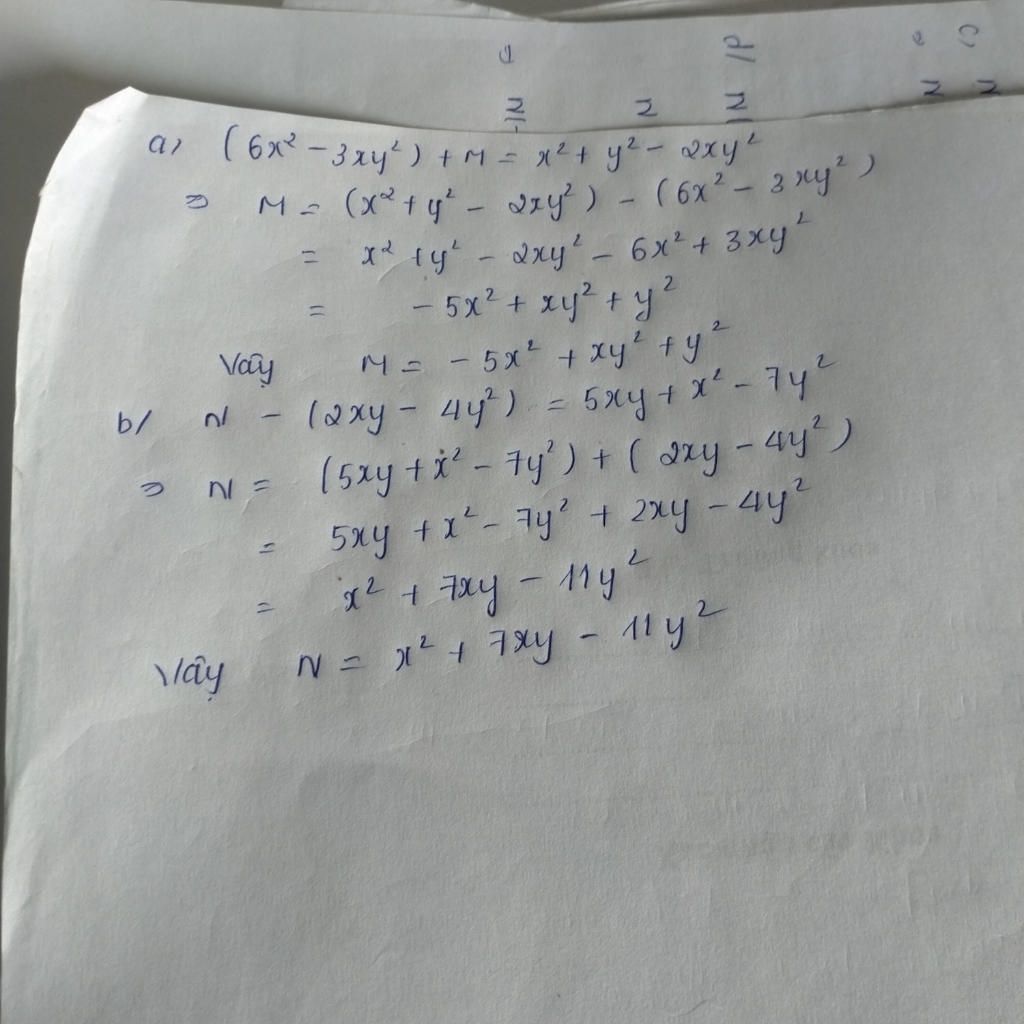 a, (6x² - 3xy²) + M = x² + y² - 2xy²
=> M = (x² + y² - 2xy²) - (6x² - 3xy²)
= x² + y² - 2xy² - 6x² + 3xy²
= - 5x² + xy² + y²
Vậy M = - 5x² + xy² + y²
b/ N - (2xy - 4y²) = 5xy + x² - 7y²
=> N = (5xy + x² - 7y²) + (2xy - 4y²)
= 5xy + x² - 7y² + 2xy - 4y²
= x² + 7xy - 11y²
Vậy N = x² + 7xy - 11y²